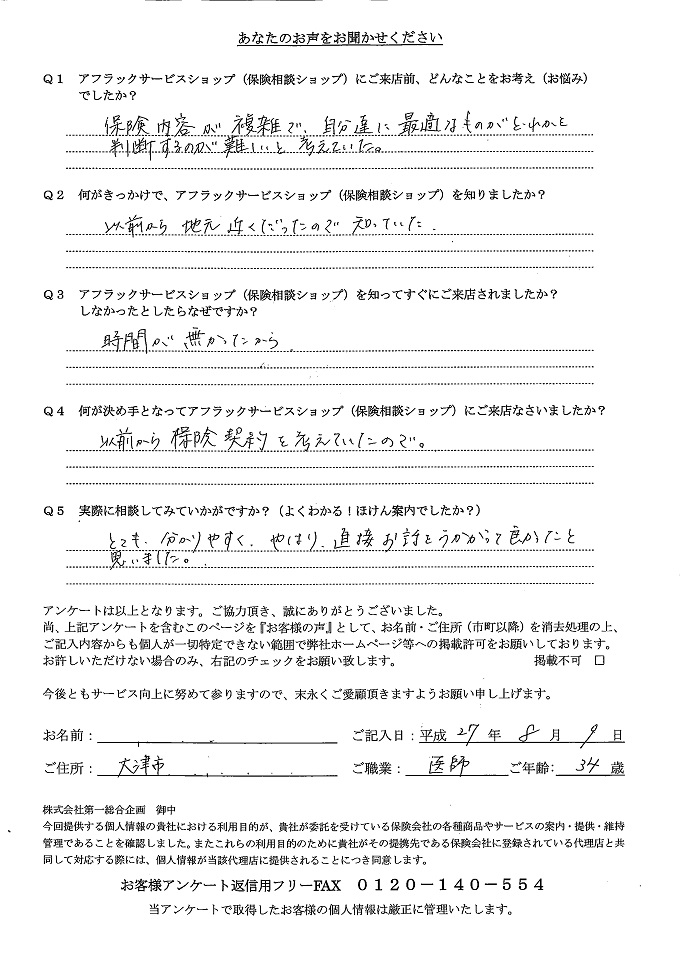 あなたのお声をお聞かせください
Q１ アフラックサービスショップ（保険相談ショップ）にご来店前、どんなことをお考え（お悩み）
でしたか？
保険内容が複雑で、自分達に最適なものがどれかと
判断するのが難しいと考えていた。
Q２ 何がきっかけで、アフラックサービスショップ（保険相談ショップ）を知りましたか？
以前から地元近くだったので知っていた.
Q３ アフラックサービスショップ（保険相談ショップ）を知ってすぐにご来店されましたか？
しなかったとしたらなぜですか？
時間が無かったから.
Q４ 何が決め手となってアフラックサービスショップ（保険相談ショップ）にご来店なさいましたか？
以前から保険契約を考えていたので。
Q５ 実際に相談してみていかがですか？（よくわかる！ほけん案内でしたか？）
とても、分かりやすく、やはり、直接お話をうかがって良かったと
思いました。
アンケートは以上となります。ご協力頂き、誠にありがとうございました。
尚、上記アンケートを含むこのページを『お客様の声』として、お名前・ご住所（市町以降）を消去処理の上、
ご記入内容からも個人が一切特定できない範囲で弊社ホームページ等への掲載許可をお願いしております。
お許しいただけない場合のみ、右記のチェックをお願い致します。 掲載不可 □
今後ともサービス向上に努めて参りますので、末永くご愛顧頂きますようお願い申し上げます。
お名前： ご記入日：平成 27 年 8 月 9 日
ご住所： 大津市 ご職業： 医師 ご年齢： 34 歳
株式会社第一総合企画 御中
今回提供する個人情報の貴社における利用目的が、貴社が委託を受けている保険会社の各種商品やサービスの案内・提供・維持
管理であることを確認しました。またこれらの利用目的のために貴社がその提携先である保険会社に登録されている代理店と共
同して対応する際には、個人情報が当該代理店に提供されることにつき同意します。
お客様アンケート返信用フリーFAX ０１２０－１４０－５５４
当アンケートで取得したお客様の個人情報は厳正に管理いたします。